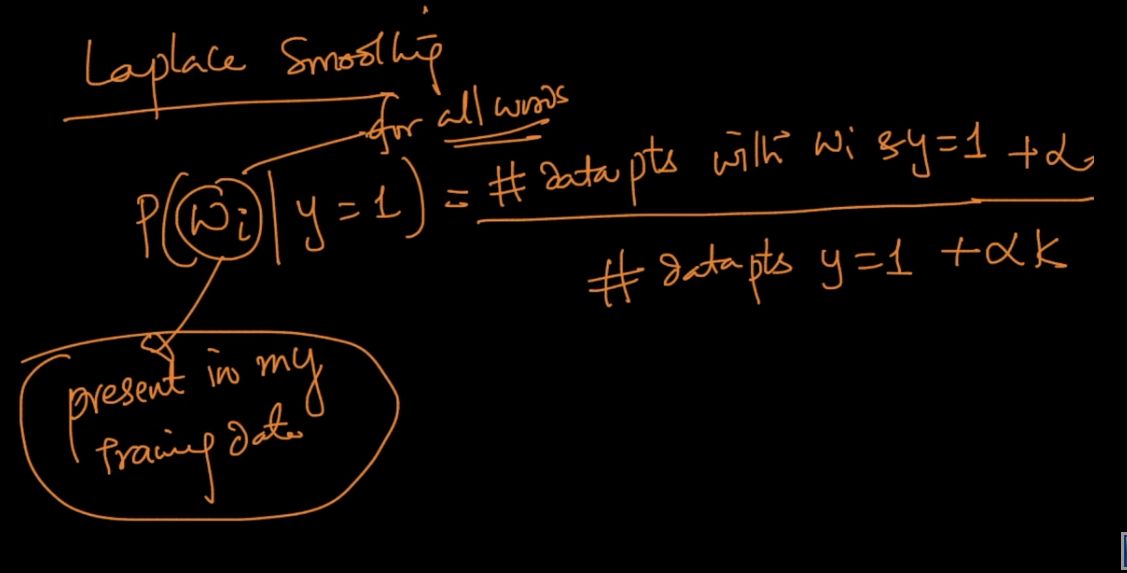 Laplace Smoothing
for all words
P(wi | y = 1) = # data pts with wi & y=1 + α
# data pts y=1 + αk
present in my
training data